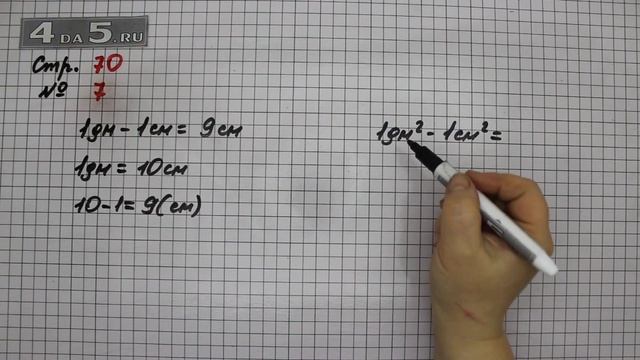 4 DA 5.RU
Стр. 70
№ 7
1дм - 1см = 9см
1дм = 10см
10-1=9(см)
1дм² - 1см² =